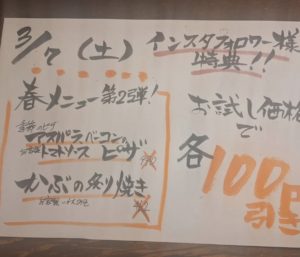 3/7(土)
インスタフォロワー様
特典!!
春メニュー第2弾!
アスパラベーコンの
トマトソース ピザ
かぶの炙り焼き
お試し価格
で
各100円